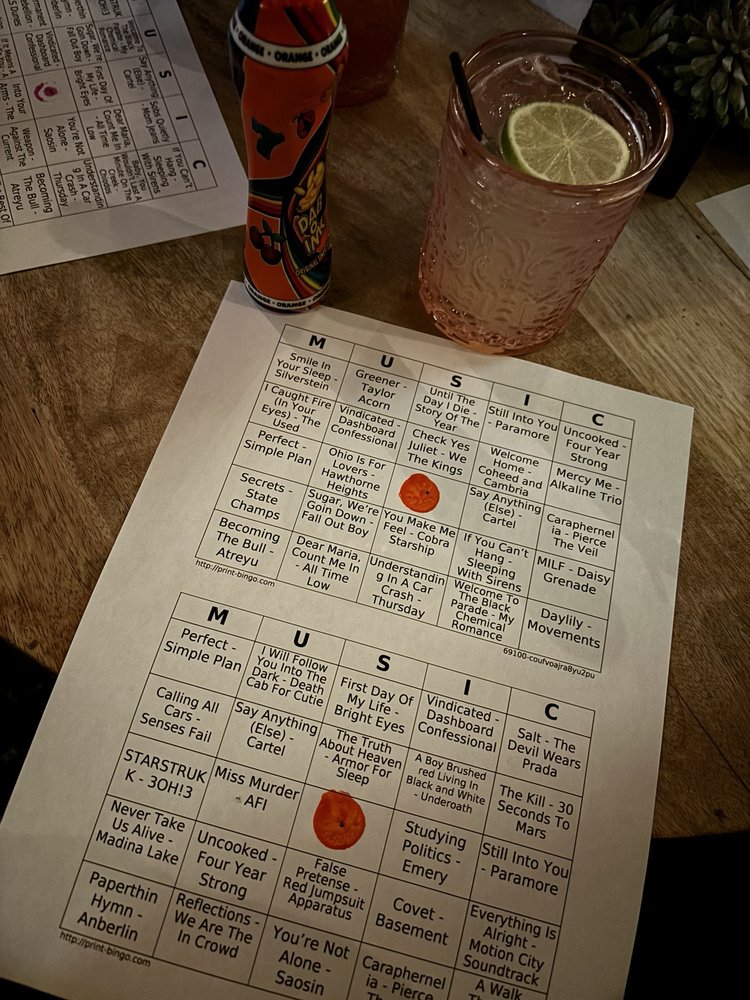 M U S I C
Smile In
Your Sleep -
Silverstein
Greener -
Taylor
Acorn
Until The
Day I Die -
Story Of The
Year
Still Into You
- Paramore
Uncooked -
Four Year
Strong
I Caught Fire
(In Your
Eyes) - The
Used
Vindicated -
Dashboard
Confessional
Check Yes
Juliet - We
The Kings
Welcome
Home -
Coheed and
Cambria
Mercy Me -
Alkaline Trio
Perfect -
Simple Plan
Ohio Is For
Lovers -
Hawthorne
Heights
Say Anything
(Else) -
Cartel
Caraphernel
ia - Pierce
The Veil
Secrets -
State
Champs
Sugar, We're
Goin Down -
Fall Out Boy
You Make Me
Feel - Cobra
Starship
If You Can't
Hang -
Sleeping
With Sirens
MILF - Daisy
Grenade
Becoming
The Bull -
Atreyu
Dear Maria,
Count Me In
- All Time
Low
Understandin
g In A Car
Crash -
Thursday
Welcome To
The Black
Parade - My
Chemical
Romance
Daylily -
Movements
http://print-bingo.com
69100-coufvoajra8yu2pu
M U S I C
Perfect -
Simple Plan
I Will Follow
You Into The
Dark - Death
Cab For Cutie
First Day Of
My Life -
Bright Eyes
Vindicated -
Dashboard
Confessional
Salt - The
Devil Wears
Prada
Calling All
Cars -
Senses Fail
Say Anything
(Else) -
Cartel
The Truth
About Heaven
- Armor For
Sleep
A Boy Brushed
red Living In
Black and White
- Underoath
The Kill - 30
Seconds To
Mars
STARSTRUK
K - 3OH!3
Miss Murder
- AFI
Studying
Politics -
Emery
Still Into You
- Paramore
Never Take
Us Alive -
Madina Lake
Uncooked -
Four Year
Strong
False
Pretense -
Red Jumpsuit
Apparatus
Covet -
Basement
Everything Is
Alright -
Motion City
Soundtrack
Paperthin
Hymn -
Anberlin
Reflections -
We Are The
In Crowd
You're Not
Alone -
Saosin
Caraphernel
ia - Pierce
A Walk
http://print-bingo.com
ORANGE • ORANGE
DAB
O'
INK
ORIGINAL
ORANGE • ORANGE
U S I C
Say Anything
(Else) -
Cartel
Sugar, We're
Goin Down -
Fall Out Boy
First Day Of
My Life -
Bright Eyes
Vindicated -
Dashboard
Confessional
Dear Maria,
Count Me In
- All Time
Low
You're Not
Alone -
Saosin
If You Can't
Hang -
Sleeping
With Sirens
Understandin
g In A Car
Crash -
Thursday
Becoming
The Bull -
Atreyu